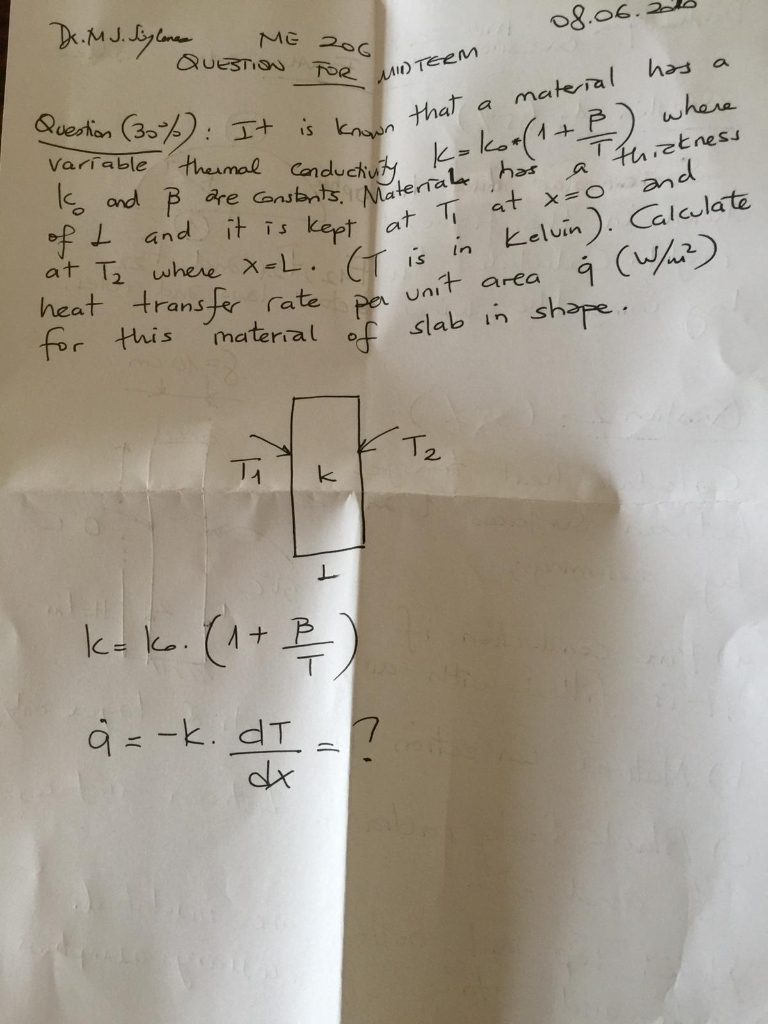 Dr. M. J.
ME 206
08.06.2020
QUESTION FOR MIDTERM
Question (30%): It is known that a material has a
variable thermal conductivity k=k₀*(1+β/T) where
k₀ and β are constants. Material has a thickness
of L and it is kept at T₁ at x=0 and
at T₂ where x=L. (T is in Kelvin). Calculate
heat transfer rate per unit area q̇ (W/m²)
for this material of slab in shape.
T₁ k T₂
L
k= k₀.(1+ β/T)
q̇ = -k. dT/dx = ?